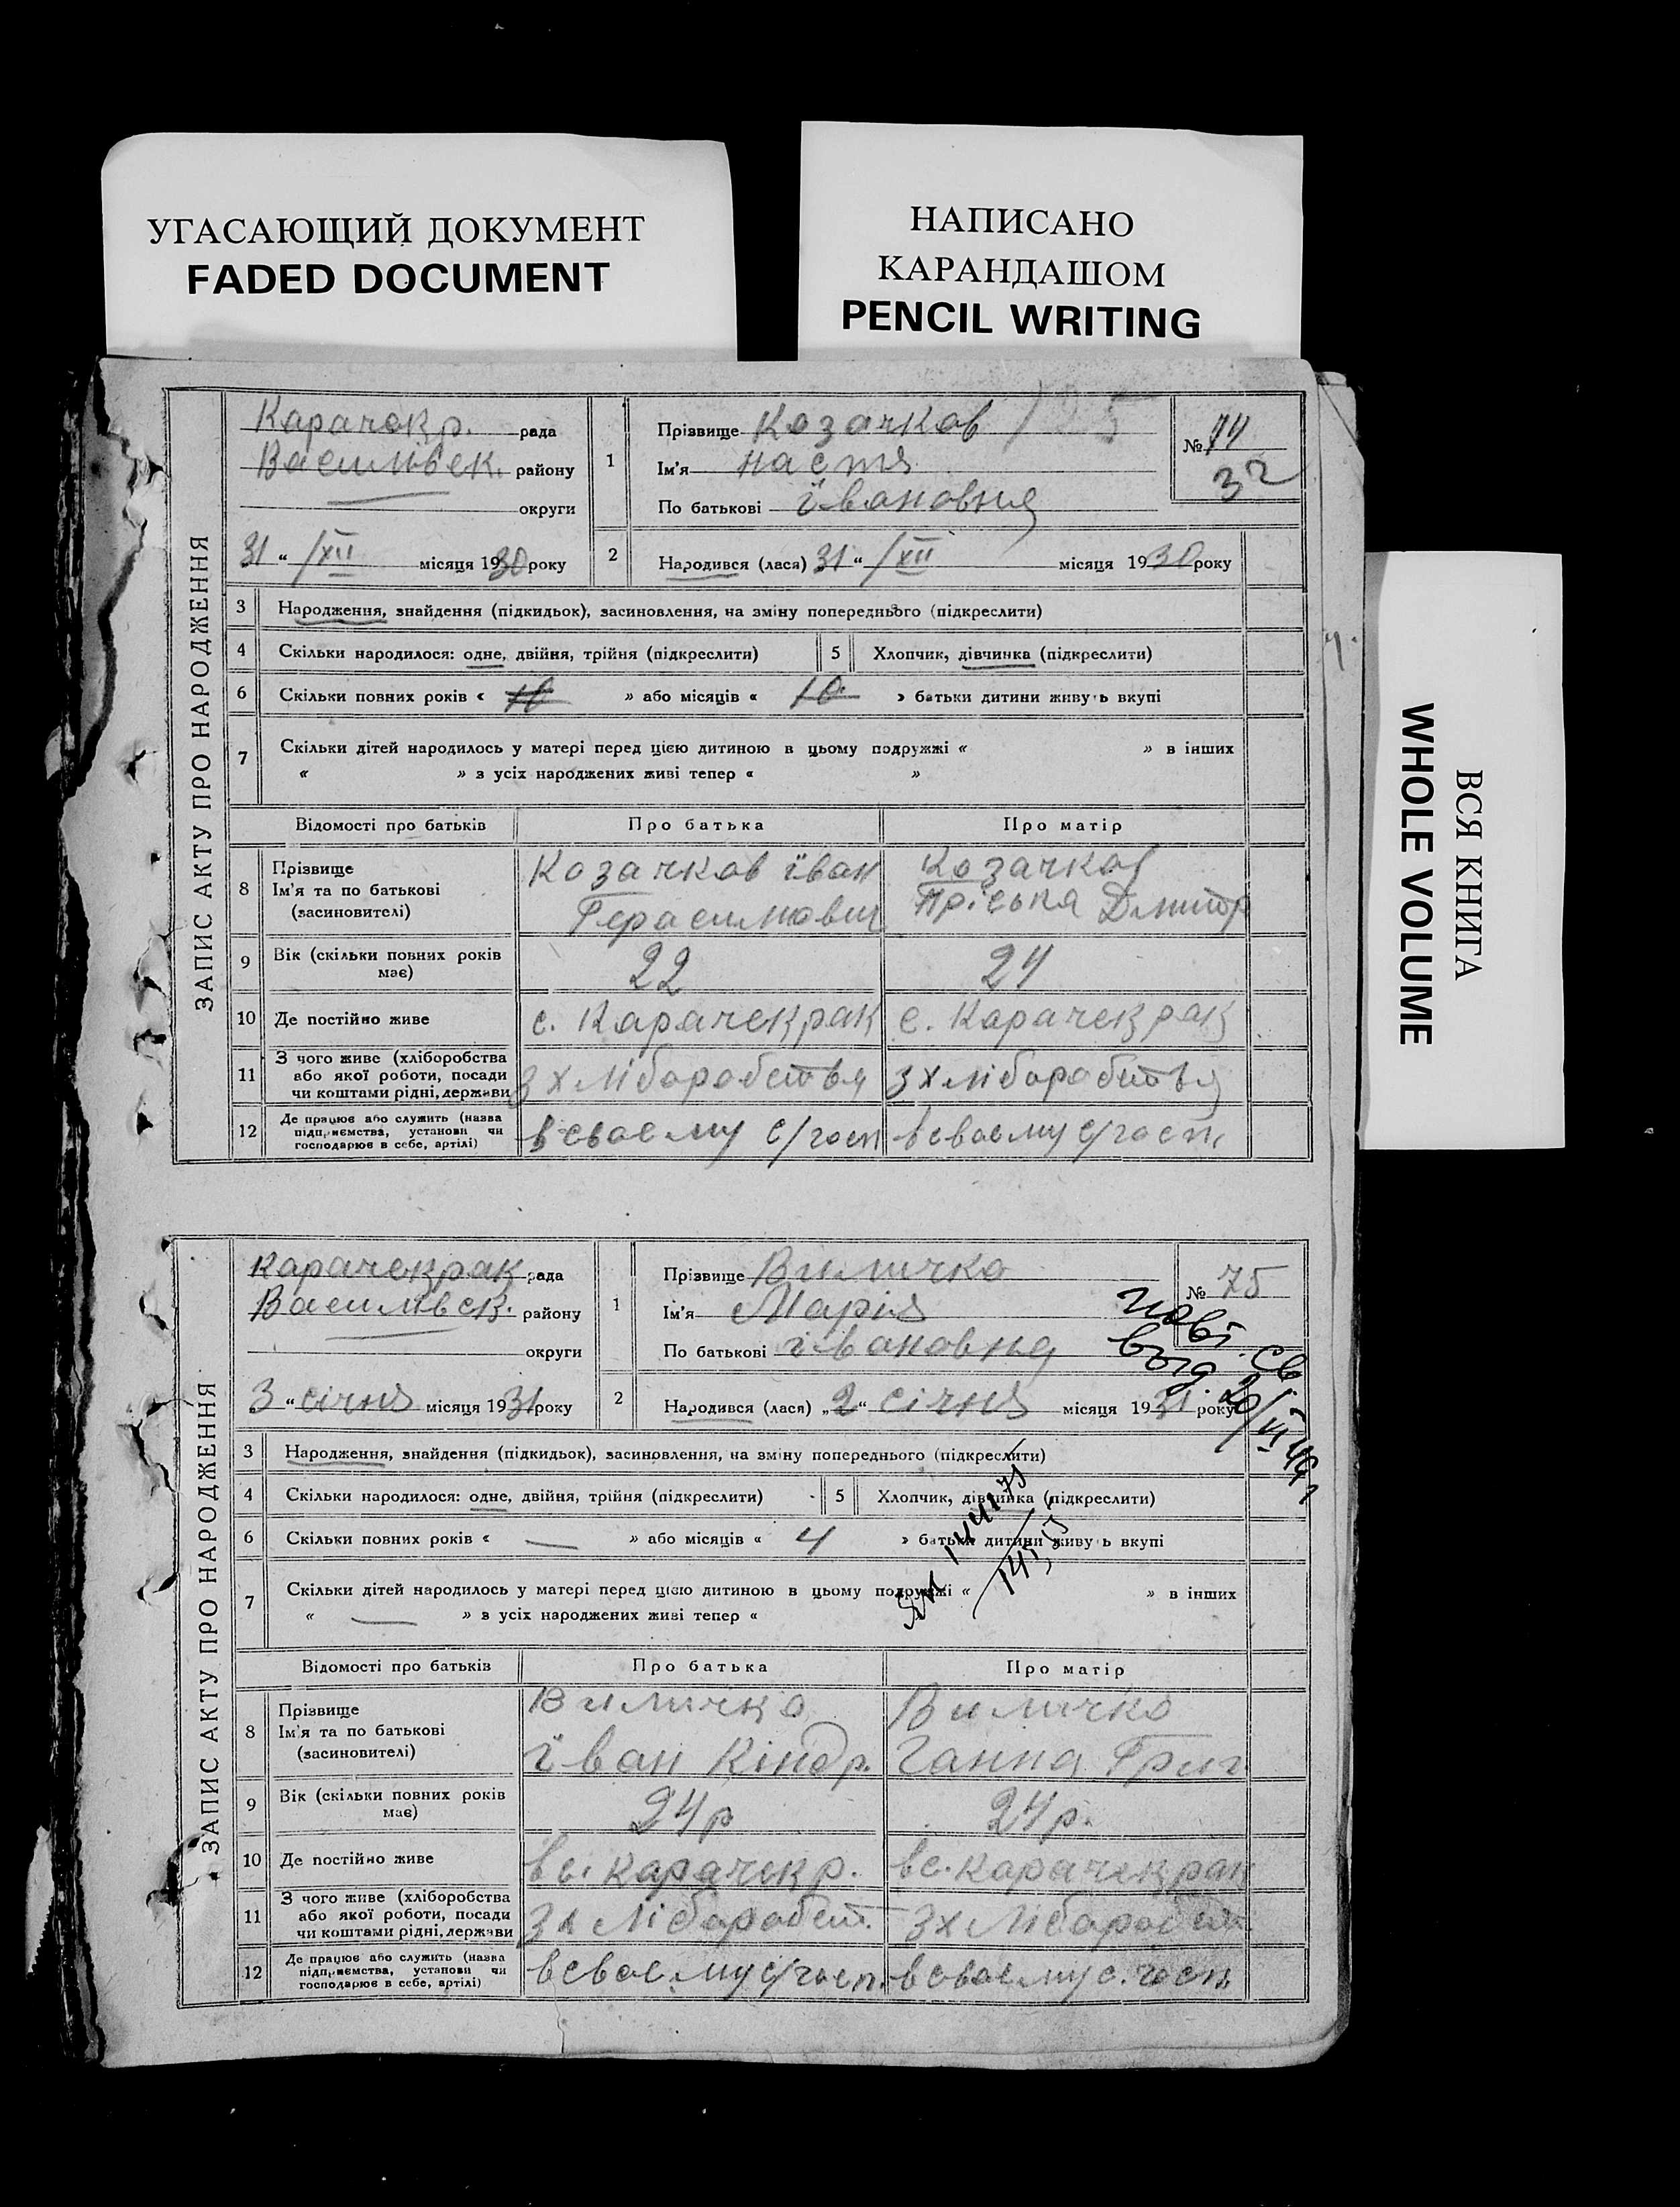 УГАСАЮЩИЙ ДОКУМЕНТ
FADED DOCUMENT
НАПИСАНО
КАРАНДАШОМ
PENCIL WRITING
ВСЯ КНИГА
WHOLE VOLUME
ЗАПИС АКТУ ПРО НАРОДЖЕННЯ
Карачекр. рада
Василівск. району
округи
31 " /XII місяця 1930 року
1 Прізвище Козачков
Ім'я Настя
По батькові Івановня
№ 74
32
2 Народився (лася) 31 " /XII місяця 1930 року
3 Народження, знайдення (підкидьок), засиновлення, на зміну попереднього (підкреслити)
4 Скільки народилося: одне, двійня, трійня (підкреслити) 5 Хлопчик, дівчинка (підкреслити)
6 Скільки повних років « 10 » або місяців « 10 » батьки дитини живуть вкупі
7 Скільки дітей народилось у матері перед цією дитиною в цьому подружжі « » в інших
« » з усіх народжених живі тепер « »
Відомості про батьків Про батька Про матір
8 Прізвище Ім'я та по батькові (засиновителі) Козачков Іван Герасимович Козачков Пріська Дмитр
9 Вік (скільки повних років має) 22 24
10 Де постійно живе с. Карачекрак с. Карачекрак
11 З чого живе (хліборобства або якої роботи, посади чи коштами рідні, держави З хліборобства З хліборобства
12 Де працює або служить (назва підприємства, установи чи господарює в себе, артілі) в своєму с/госп в своєму с/госп.
ЗАПИС АКТУ ПРО НАРОДЖЕННЯ
Карачекрак рада
Василівск. району
округи
3 " січня місяця 1931 року
1 Прізвище Виличко
Ім'я Марія
По батькові Івановна
№ 75
2 Народився (лася) „2" січня місяця 1931 року
3 Народження, знайдення (підкидьок), засиновлення, на зміну попереднього (підкреслити)
4 Скільки народилося: одне, двійня, трійня (підкреслити) 5 Хлопчик, дівчинка (підкреслити)
6 Скільки повних років « — » або місяців « 4 » батьки дитини живуть вкупі
7 Скільки дітей народилось у матері перед цією дитиною в цьому подружжі « » в інших
« — » з усіх народжених живі тепер «
Відомості про батьків Про батька Про матір
8 Прізвище Ім'я та по батькові (засиновителі) Виличко Іван Кіндр. Виличко Ганна Григ
9 Вік (скільки повних років має) 24 р 24 р.
10 Де постійно живе в с. Карачекр. в с. Карачекрак
11 З чого живе (хліборобства або якої роботи, посади чи коштами рідні, держави З хліборобст. З хліборобст
12 Де працює або служить (назва підприємства, установи чи господарює в себе, артілі) в своєму с/госп. в своєму с. госп